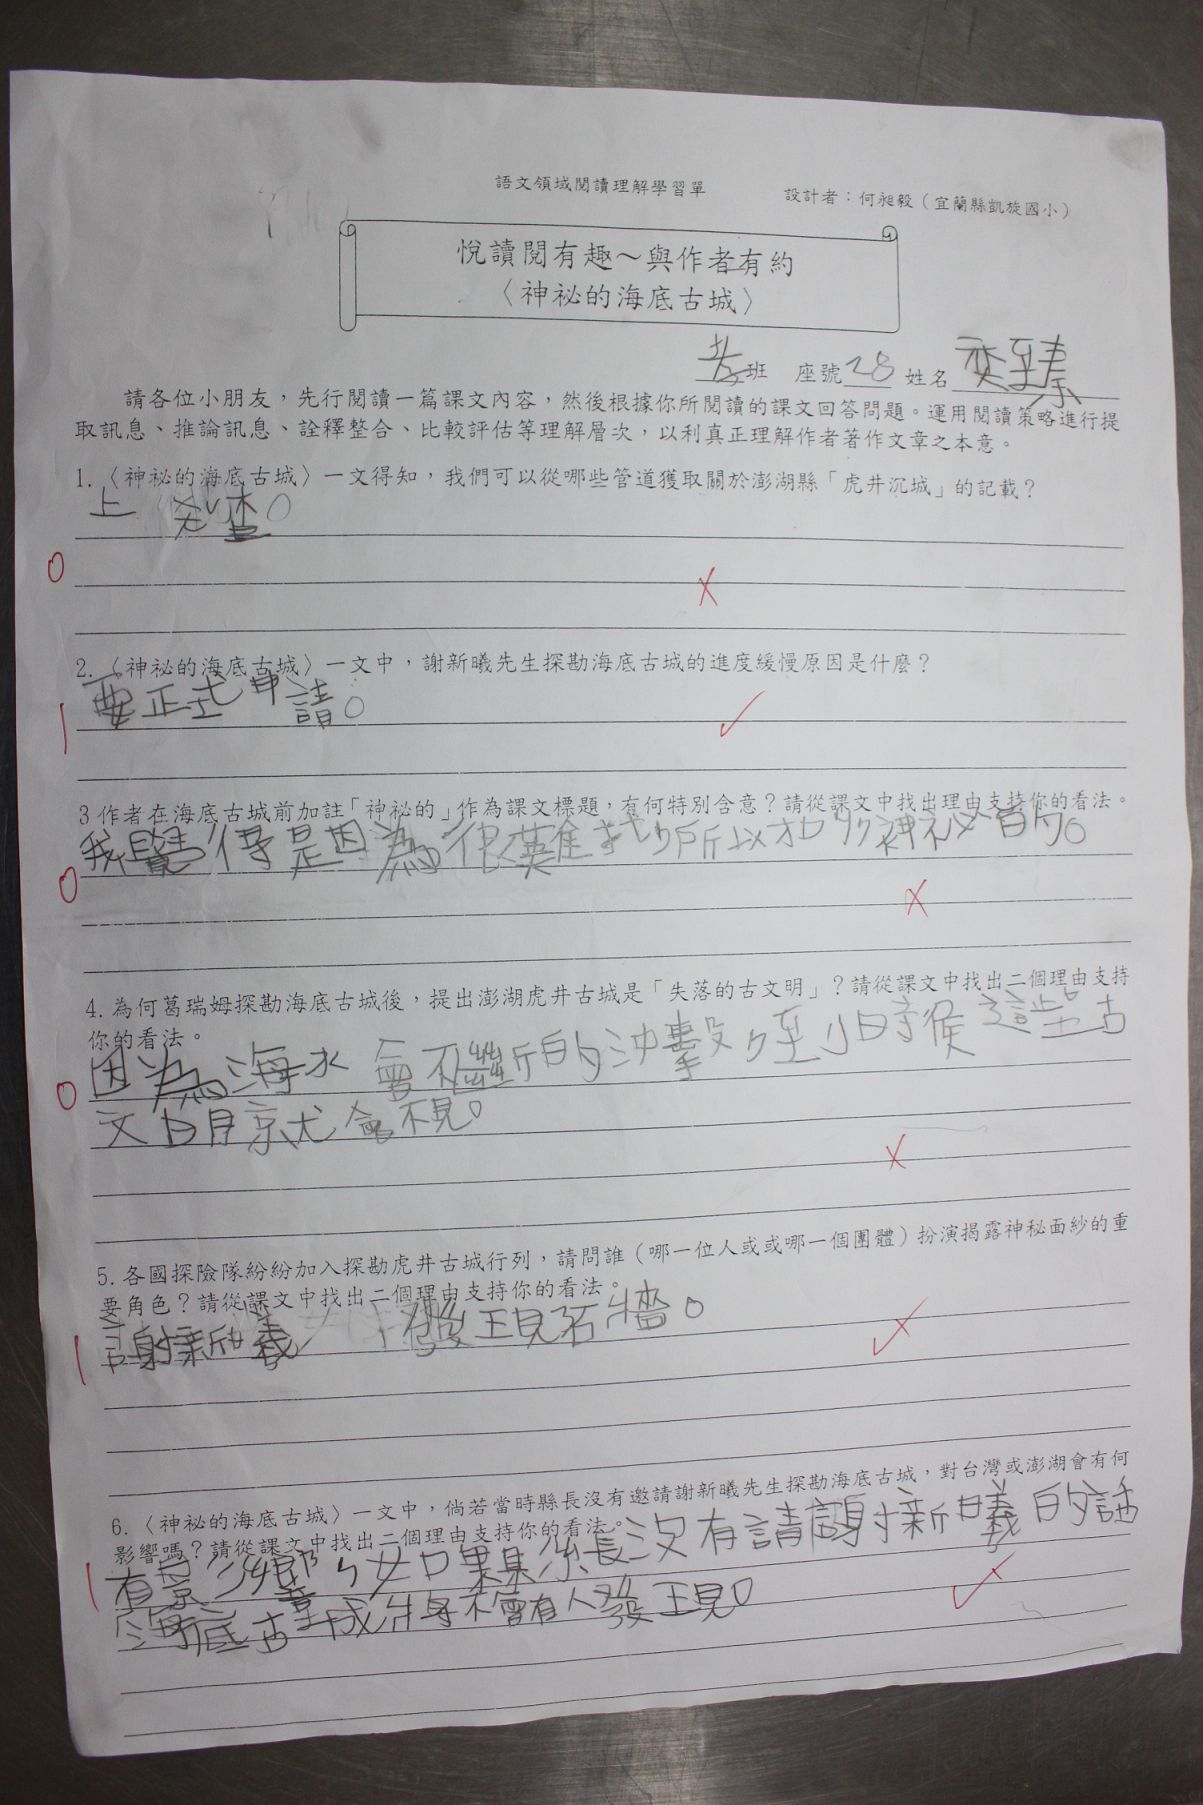 語文領域閱讀理解學習單
設計者：何昶毅（宜蘭縣凱旋國小）
悅讀閱有趣～與作者有約
〈神祕的海底古城〉
孝班 座號28 姓名
請各位小朋友，先行閱讀一篇課文內容，然後根據你所閱讀的課文回答問題。運用閱讀策略進行提
取訊息、推論訊息、詮釋整合、比較評估等理解層次，以利真正理解作者著作文章之本意。
1.〈神祕的海底古城〉一文得知，我們可以從哪些管道獲取關於澎湖縣「虎井沉城」的記載？
上
0
X
2.〈神祕的海底古城〉一文中，謝新曦先生探勘海底古城的進度緩慢原因是什麼？
要正式申請。
1
✓
3 作者在海底古城前加註「神祕的」作為課文標題，有何特別含意？請從課文中找出理由支持你的看法。
我覺得是因為很難找，所以才叫神祕的。
0
X
4. 為何葛瑞姆探勘海底古城後，提出澎湖虎井古城是「失落的古文明」？請從課文中找出二個理由支持
你的看法。
因為海水會不斷的沖擊，到時候這些古
文明就會不見。
0
X
5. 各國探險隊紛紛加入探勘虎井古城行列，請問誰（哪一位人或或哪一個團體）扮演揭露神秘面紗的重
要角色？請從課文中找出二個理由支持你的看法。
謝新曦，發現石牆。
1
6.〈神祕的海底古城〉一文中，倘若當時縣長沒有邀請謝新曦先生探勘海底古城，對台灣或澎湖會有何
影響嗎？請從課文中找出二個理由支持你的看法。
有影響，如果縣長沒有請謝新曦的話
海底古城將不會有人發現。
1